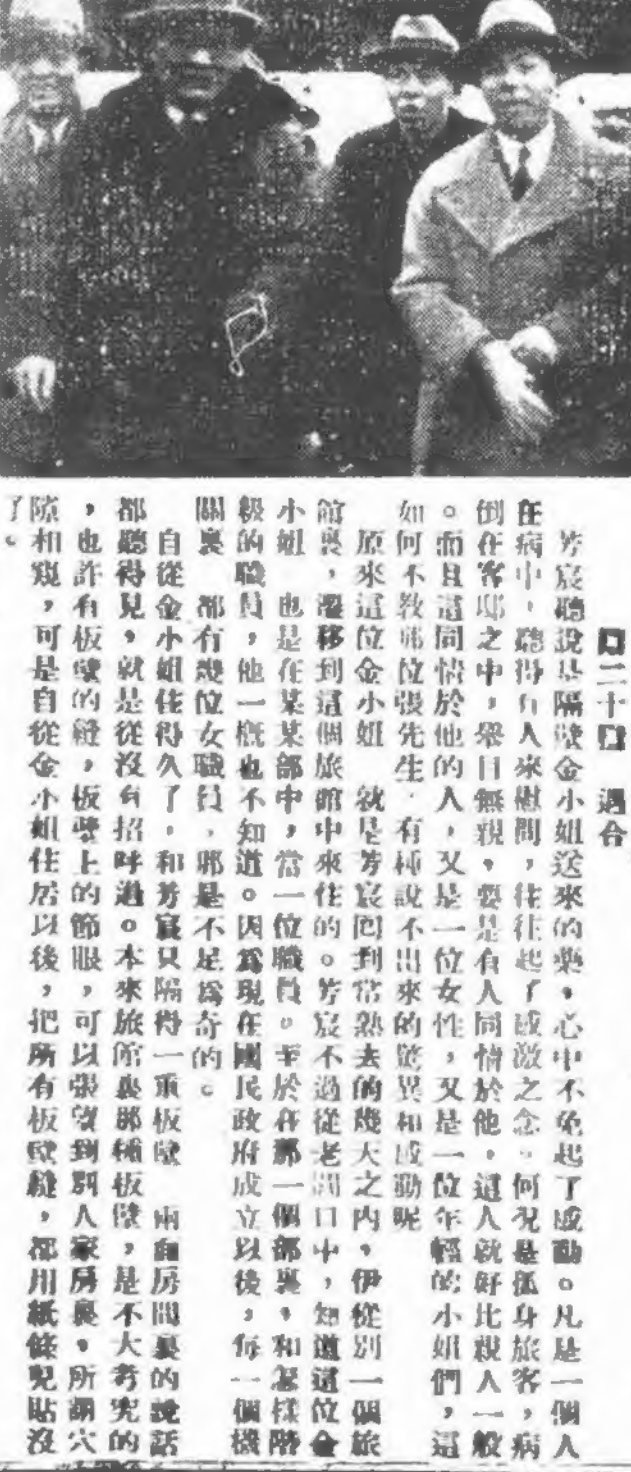 二十 遇合
芳宸聽說是隔壁金小姐送來的藥,心中不免起了感動。凡是一個人
在病中,聽得有人來慰問,往往起了感激之念。何況是孤身旅客,病
倒在客邸之中,舉目無親,要是有人同情於他,這人就好比親人一般
。而且這同情於他的人,又是一位女性,又是一位年輕的小姐們,這
如何不教那位張先生,有種說不出來的驚異和感動呢
原來這位金小姐 就是芳宸回到常熟去的幾天之內,伊從別一個旅
館裏,遷移到這個旅館中來住的。芳宸不過從老闆口中,知道這位金
小姐 也是在某某部中,當一位職員。至於在那一個部裏,和怎樣階
級的職員,他一概也不知道。因爲現在國民政府成立以後,每一個機
關裏 都有幾位女職員,那是不足爲奇的。
自從金小姐住得久了,和芳宸只隔得一重板壁 兩面房間裏的說話
都聽得見,就是從沒有招呼過。本來旅館裏那種板壁,是不大考究的
,也許有板壁的縫,板壁上的節眼,可以張望到別人家房裏,所謂穴
隙相窺,可是自從金小姐住居以後,把所有板壁縫,都用紙條兒貼沒
了。